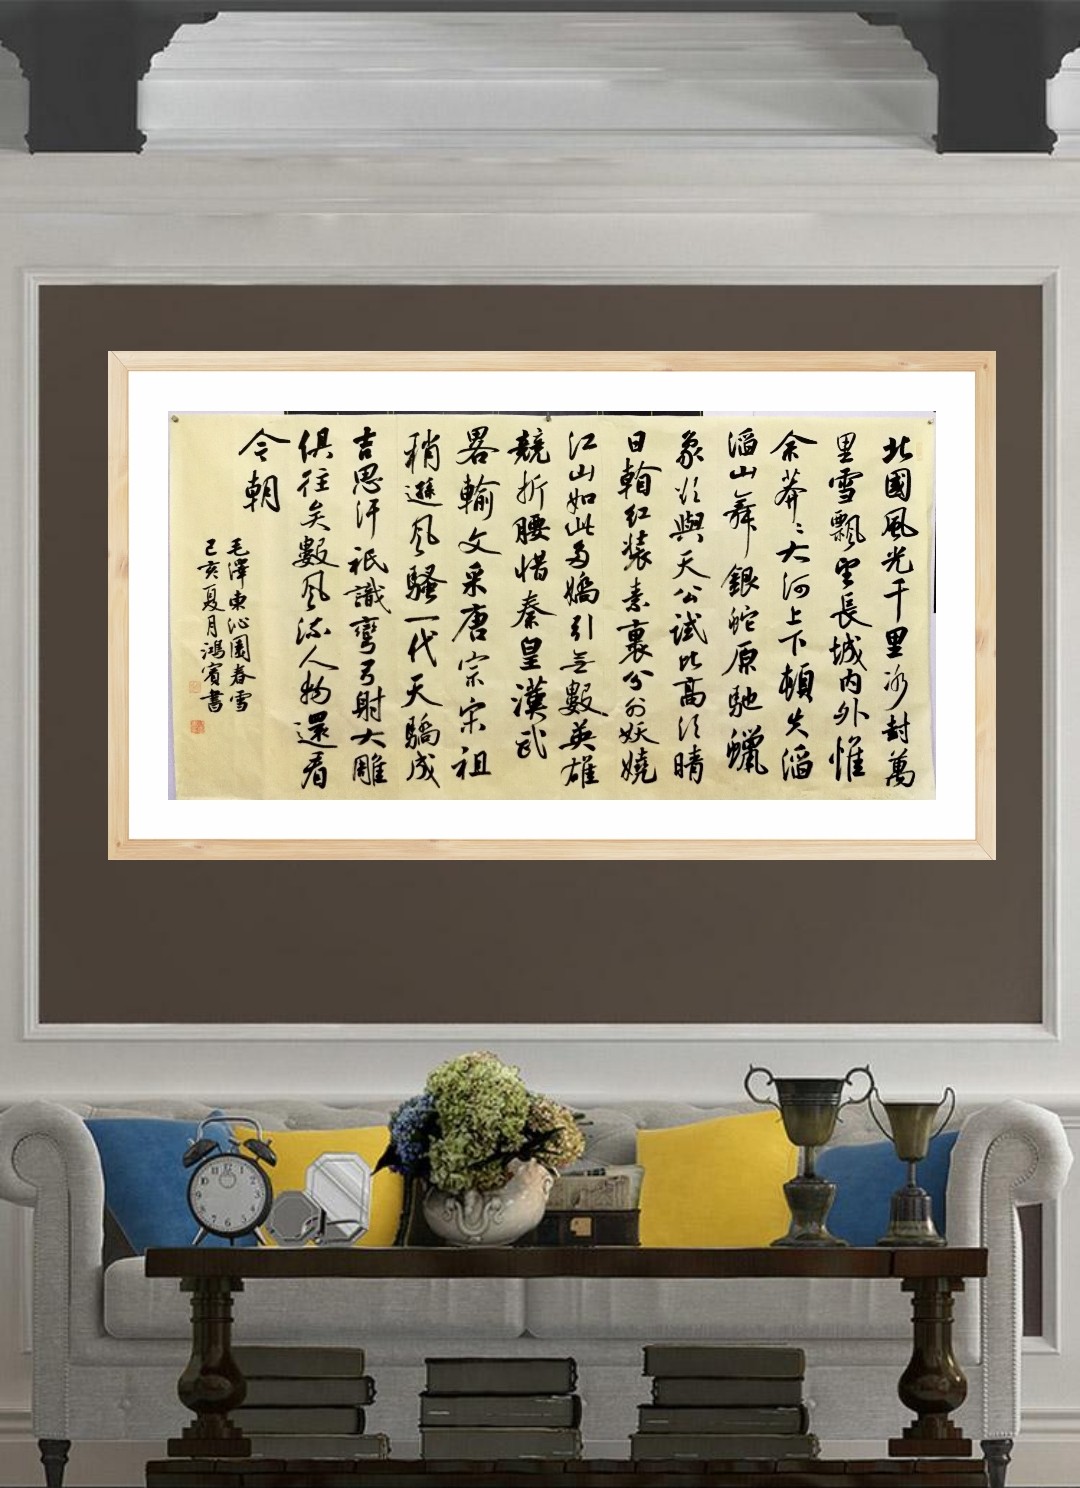 北國風光千里冰封萬
里雪飄望長城內外惟
余莽〻大河上下頓失滔
滔山舞銀蛇原馳蠟
象欲與天公試比高須晴
日看紅裝素裹分外妖嬈
江山如此多嬌引無數英雄
競折腰惜秦皇漢武
畧輸文采唐宗宋祖
稍遜風騷一代天驕成
吉思汗祇識彎弓射大雕
俱往矣數風流人物還看
今朝
毛澤東沁園春雪
己亥夏月鴻賓書